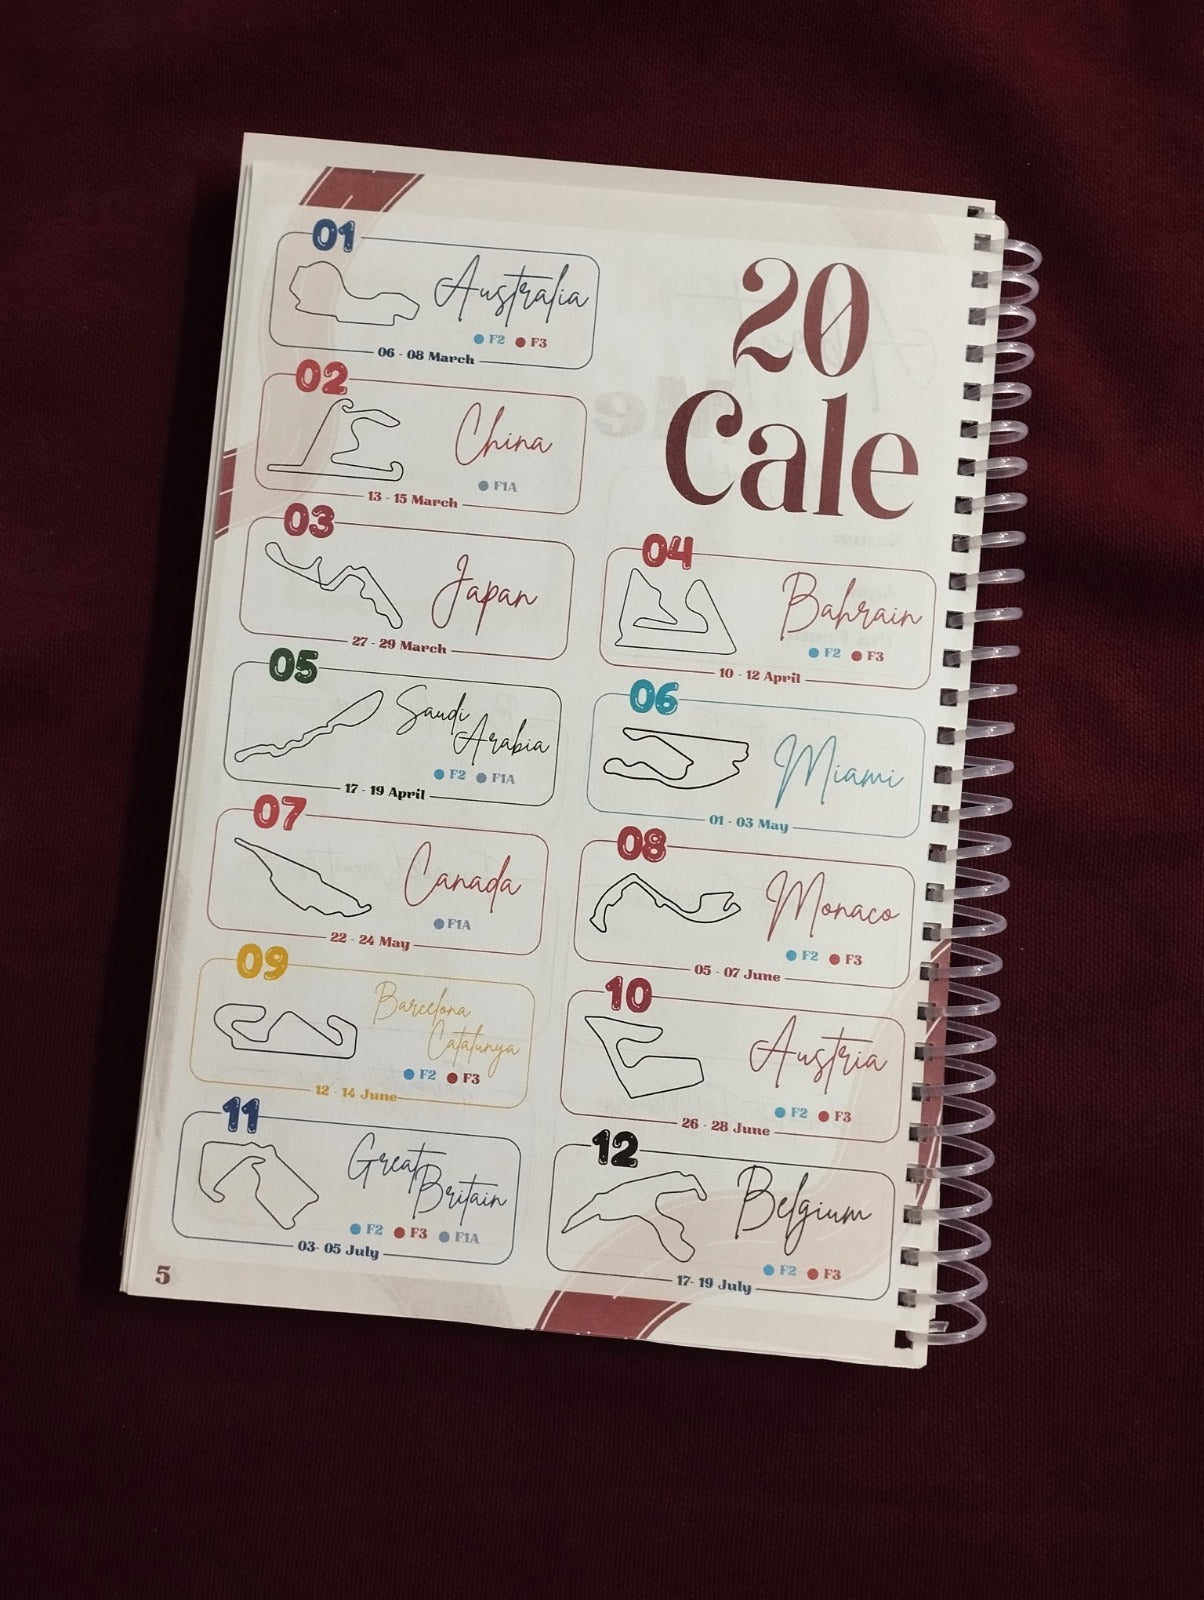 20
Cale
01
Australia
F2 F3
06 - 08 March
02
China
F1A
13 - 15 March
03
Japan
27 - 29 March
04
Bahrain
F2 F3
10 - 12 April
05
Saudi
Arabia
F2 F1A
17 - 19 April
06
Miami
01 - 03 May
07
Canada
F1A
22 - 24 May
08
Monaco
F2 F3
05 - 07 June
09
Barcelona
Catalunya
F2 F3
12 - 14 June
10
Austria
F2 F3
26 - 28 June
11
Great
Britain
F2 F3 F1A
03- 05 July
12
Belgium
F2 F3
17- 19 July
5